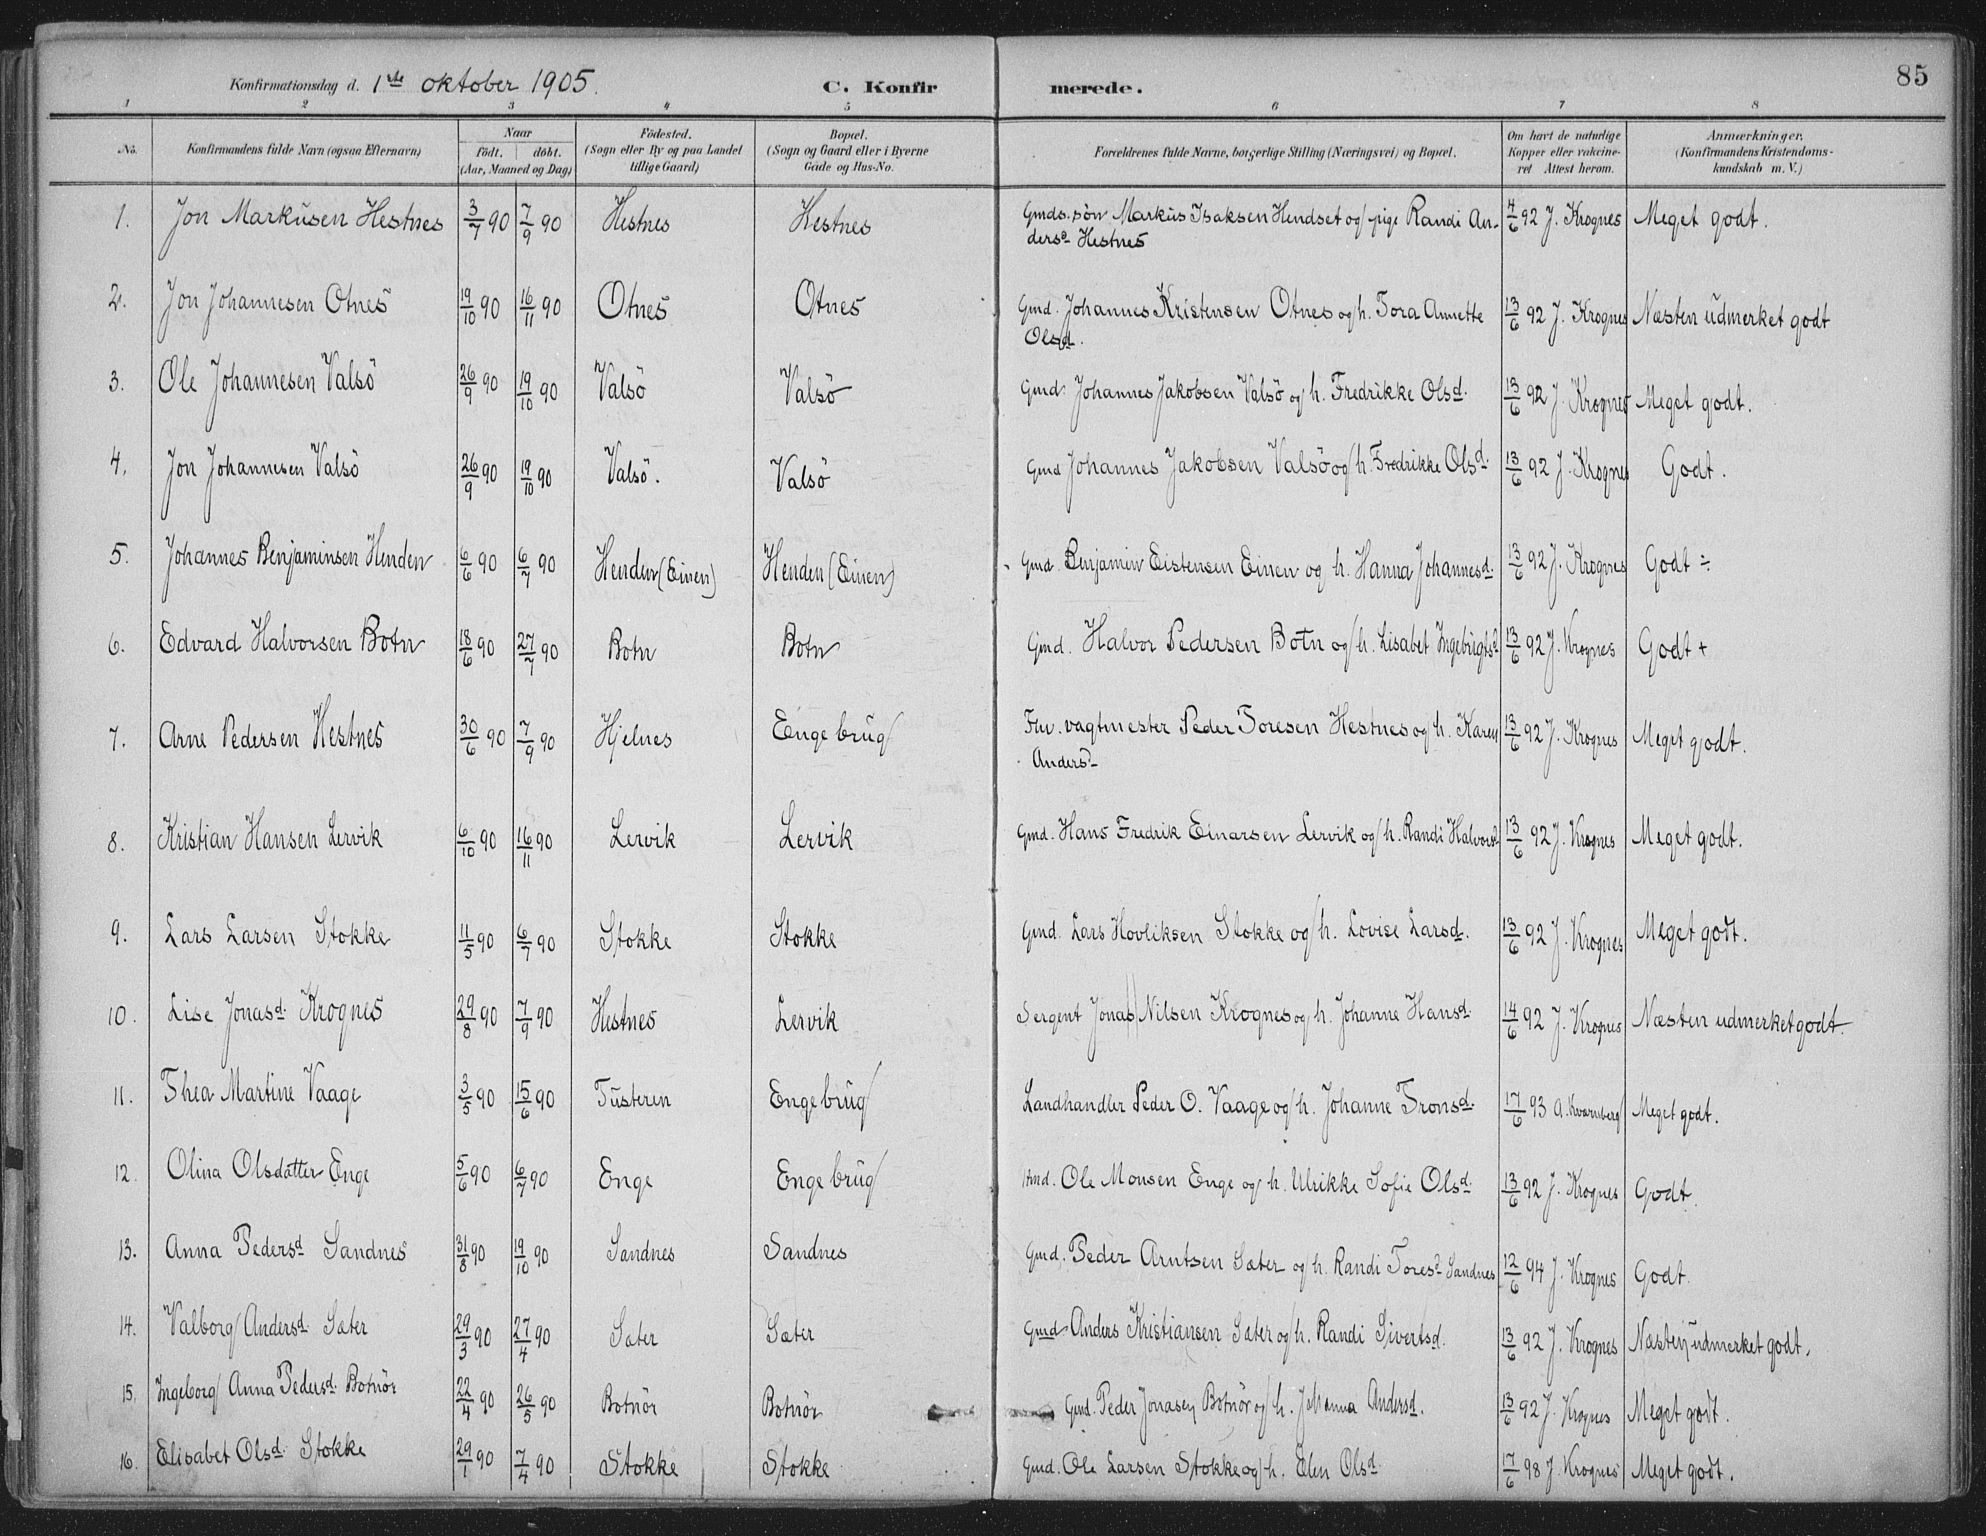 85
Konfirmationsdag d. 1ste oktober 1905. C. Konfirmerede.
1 2 3 4 5 6 7 8
No. Konfirmandens fulde Navn (ogsaa Efternavn) Naar födt. döbt. (Aar, Maaned og Dag) Födested. (Sogn eller By og paa Landet tillige Gaard) Bopæl. (Sogn og Gaard eller i Byerne Gade og Hus-No. Forældrenes fulde Navne, borgerlige Stilling (Næringsvei) og Bopæl. Om havt de naturlige Kopper eller vakcineret Attest herom. Anmærkninger. (Konfirmandens Kristendomskundskab m. V.)
1. Jon Markusen Hestnes 3/7 90 7/9 90 Hestnes Hestnes Gmds. søn Markus Isaksen Hendset og pige Randi An-
dersd Hestnes 4/6 92 J. Krognes Meget godt.
2. Jon Johannesen Otnes 19/10 90 16/11 90 Otnes Otnes Gmd. Johannes Kristensen Otnes og h. Tora Annette
Olsd. 13/6 92 J. Krognes Næsten udmerket godt
3. Ole Johannesen Valsö 26/9 90 19/10 90 Valsö Valsö Gmd. Johannes Jakobsen Valsö og h. Fredrikke Olsd. 13/6 92 J. Krognes Meget godt.
4. Jon Johannesen Valsö 26/9 90 19/10 90 Valsö. Valsö Gmd Johannes Jakobsen Valsö og h. Fredrikke Olsd. 13/6 92 J. Krognes Godt.
5. Johannes Benjaminsen Henden 6/6 90 6/7 90 Henden (Einen) Henden (Einen) Gmd. Benjamin Eistensen Einen og h. Hanna Johannesd. 13/6 92 J. Krognes Godt ÷
6. Edvard Halvorsen Botn 18/6 90 27/7 90 Botn Botn Gmd. Halvor Pedersen Botn og h. Lisabet Ingebrigtsd 13/6 92 J. Krognes Godt +
7. Arne Pedersen Hestnes 30/6 90 7/9 90 Hjelnes Engebrug Fhv. vagtmester Peder Toresen Hestnes og h. Karen
Andersd 13/6 92 J. Krognes Meget godt.
8. Kristian Hansen Lervik 6/10 90 16/11 90 Lervik Lervik Gmd. Hans Fredrik Einarsen Lervik og h. Randi Halvorsd 13/6 92 J. Krognes Meget godt.
9. Lars Larsen Stokke 11/5 90 6/7 90 Stokke Stokke Gmd. Lars Hovliksen Stokke og h. Lovise Larsd. 13/6 92 J. Krognes Meget godt.
10. Lise Jonasd. Krognes 29/8 90 7/9 90 Hestnes Lervik Sergent Jonas Nilsen Krognes og h. Johanne Hansd. 14/6 92 J. Krognes Næsten udmerket godt.
11. Thea Martine Vaage 3/5 90 15/6 90 Tusteren Engebrug Landhandler Peder O. Vaage og h. Johanne Tronsd. 17/6 93 A. Kvarnberg Meget godt.
12. Olina Olsdatter Enge 5/6 90 6/7 90 Enge Engebrug Ole Monsen Enge og h. Ulrikke Sofie Olsd. 13/6 92 J. Krognes Godt.
13. Anna Pedersd Sandnes 31/8 90 19/10 90 Sandnes Sandnes Gmd. Peder Arntsen Sæter og h. Randi Toresd. Sandnes 12/6 94 J. Krognes Godt.
14. Valborg Andersd. Sæter 29/3 90 27/4 90 Sæter Sæter Gmd Anders Kristiansen Sæter og h. Randi Sivertsd. 13/6 92 J. Krognes Næsten udmerket godt.
15. Ingeborg Anna Pedersd. Botnör 22/4 90 26/5 90 Botnör Botnör Gmd. Peder Jonasen Botnör og h. Andersd. 13/6 92 J. Krognes Meget godt.
16. Elisabet Olsd. Stokke 29/1 90 7/4 90 Stokke Stokke Gmd. Ole Larsen Stokke og h. Elen Olsd. 17/6 98 J. Krognes Meget godt.